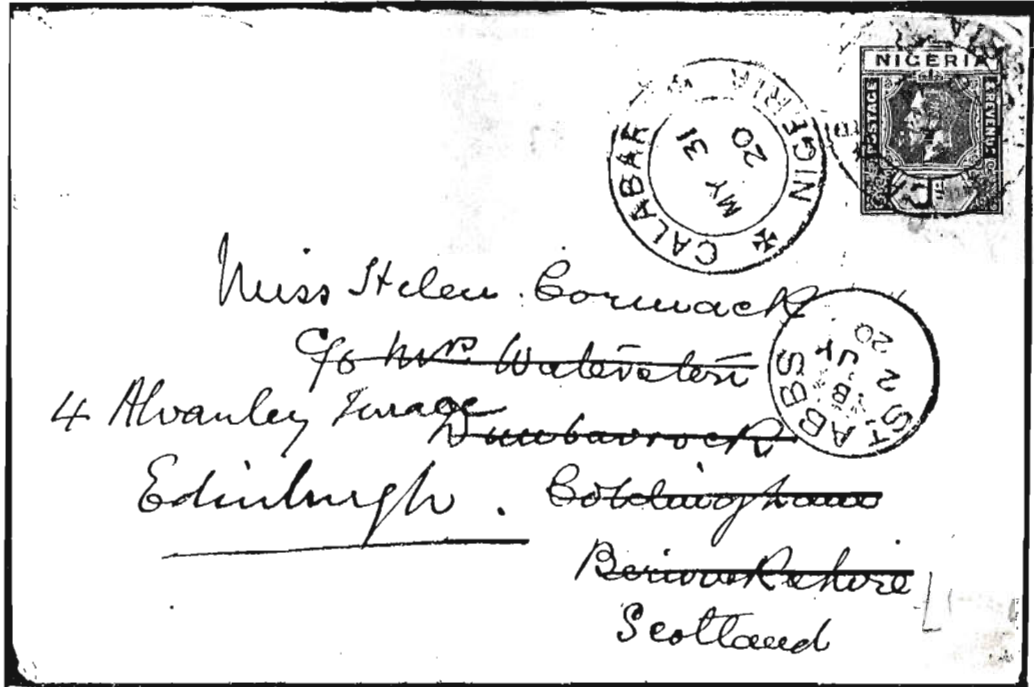 NIGERIA
POSTAGE
& REVENUE
CALABAR NIGERIA
MY 31
20
Miss Helen Cormack
c/o Mrs Waterston
4 Alvanley Terrace
Dunbarrock
Edinburgh.
Coldingham
Berwickshire
Scotland
ST. ABBS
B
2 JY
20